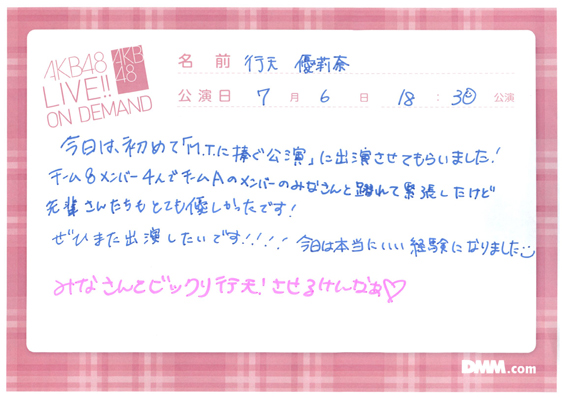 AKB48
LIVE!!
ON DEMAND
AKB
48
名前 行天 優莉奈
公演日 7月6日 18:30 公演
今日は、初めて「M.T.に捧ぐ公演」に出演させてもらいました!
チーム8メンバー4人でチームAのメンバーのみなさんと踊れて緊張したけど
先輩さんたちもとても優しかったです!
ぜひまた出演したいです!!!! 今日は本当にいい経験になりました
みなさんとビックリ行天!させるけんなぁ♡
DMM.com